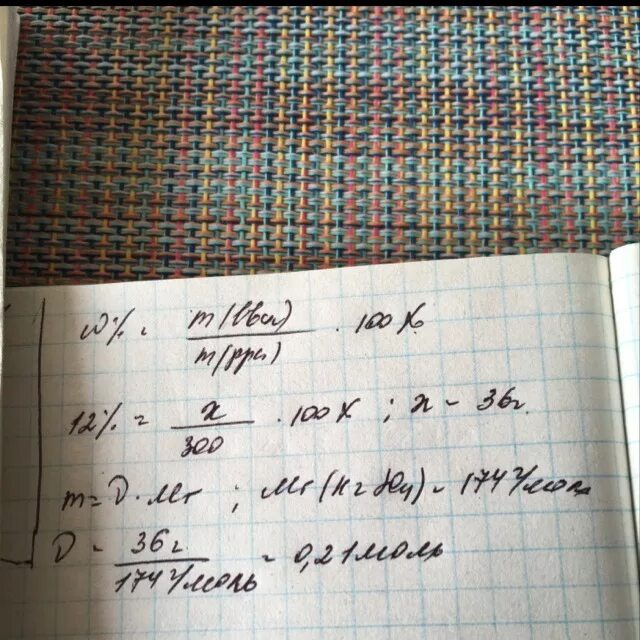 ω% = m(вва) / m(рра) · 100%
12% = x / 300 · 100% ; x = 36г.
m = ν · Mr ; Mr (K2SO4) = 174 г/моль
ν = 36г / 174 г/моль = 0,21 моль